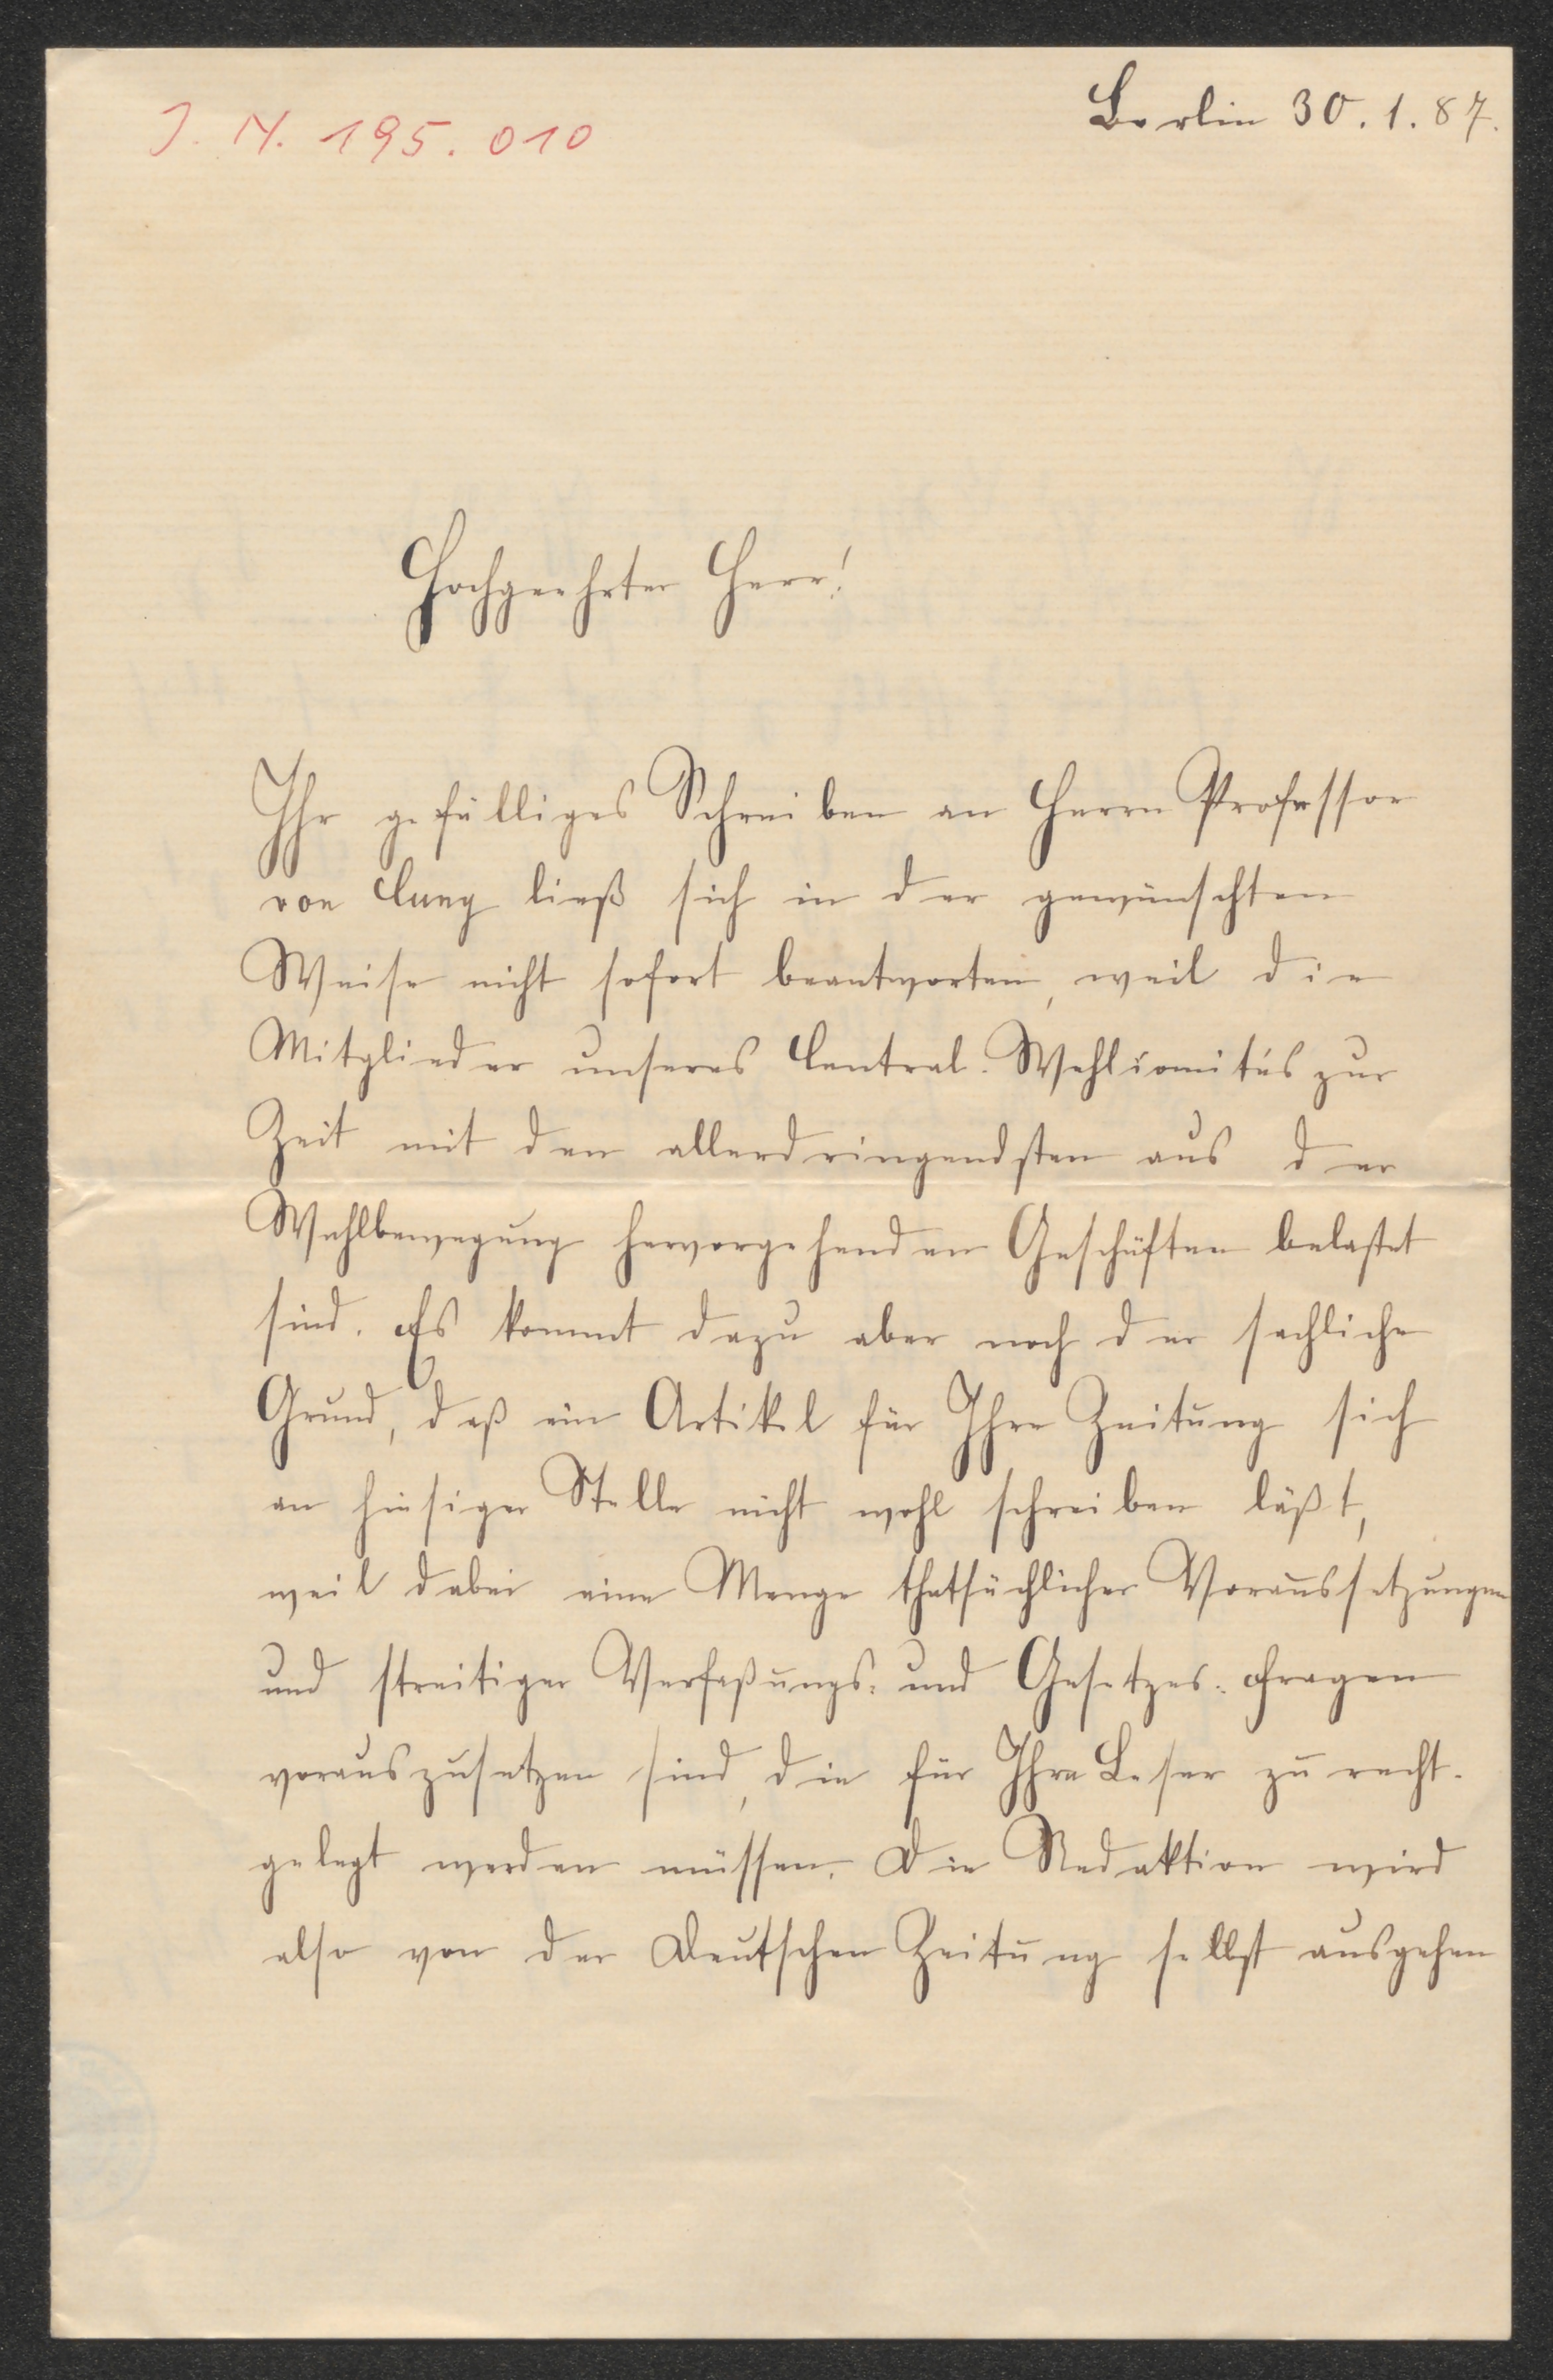 J. N. 195.010
Berlin 30.1.87.
Hochgeehrter Herr!
Ihr gefälliges Schreiben an Herrn Professor
von Cuny ließ sich in der gewünschten
Weise nicht sofort beantworten, weil die
Mitglieder unseres Central-Wahlcomités zur
Zeit mit den allerdringendsten aus der
Wahlbewegung hervorgehenden Geschäften belastet
sind. Es kommt dazu aber noch der sachliche
Grund, daß ein Artikel für Ihre Zeitung sich
an hiesiger Stelle nicht wohl schreiben läßt,
weil dabei eine Menge thatsächlicher Voraussetzungen
und streitiger Verfaßungs- und Gesetzes-Fragen
vorauszusetzen sind, die für Ihre Leser zurecht-
gelegt werden müssen. Die Redaktion wird
also von der Deutschen Zeitung selbst ausgehen